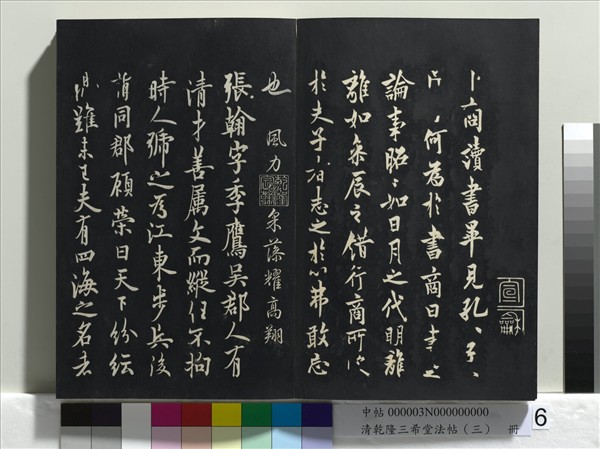 宣龢
卜商讀書畢見孔〻子〻
問何為於書商曰書之
論事昭〻如日月之代明離
離如參辰之錯行商所受
於夫子者志之於心弗敢忘
也 風力 采藻耀高翔
張翰字季鷹吳郡人有
清才善属文而縱任不拘
時人號之為江東步兵後
謂同郡顧榮曰天下紛紜
禍難未已夫有四海之名者
中帖 000003N000000000
清乾隆三希堂法帖（三） 冊
6